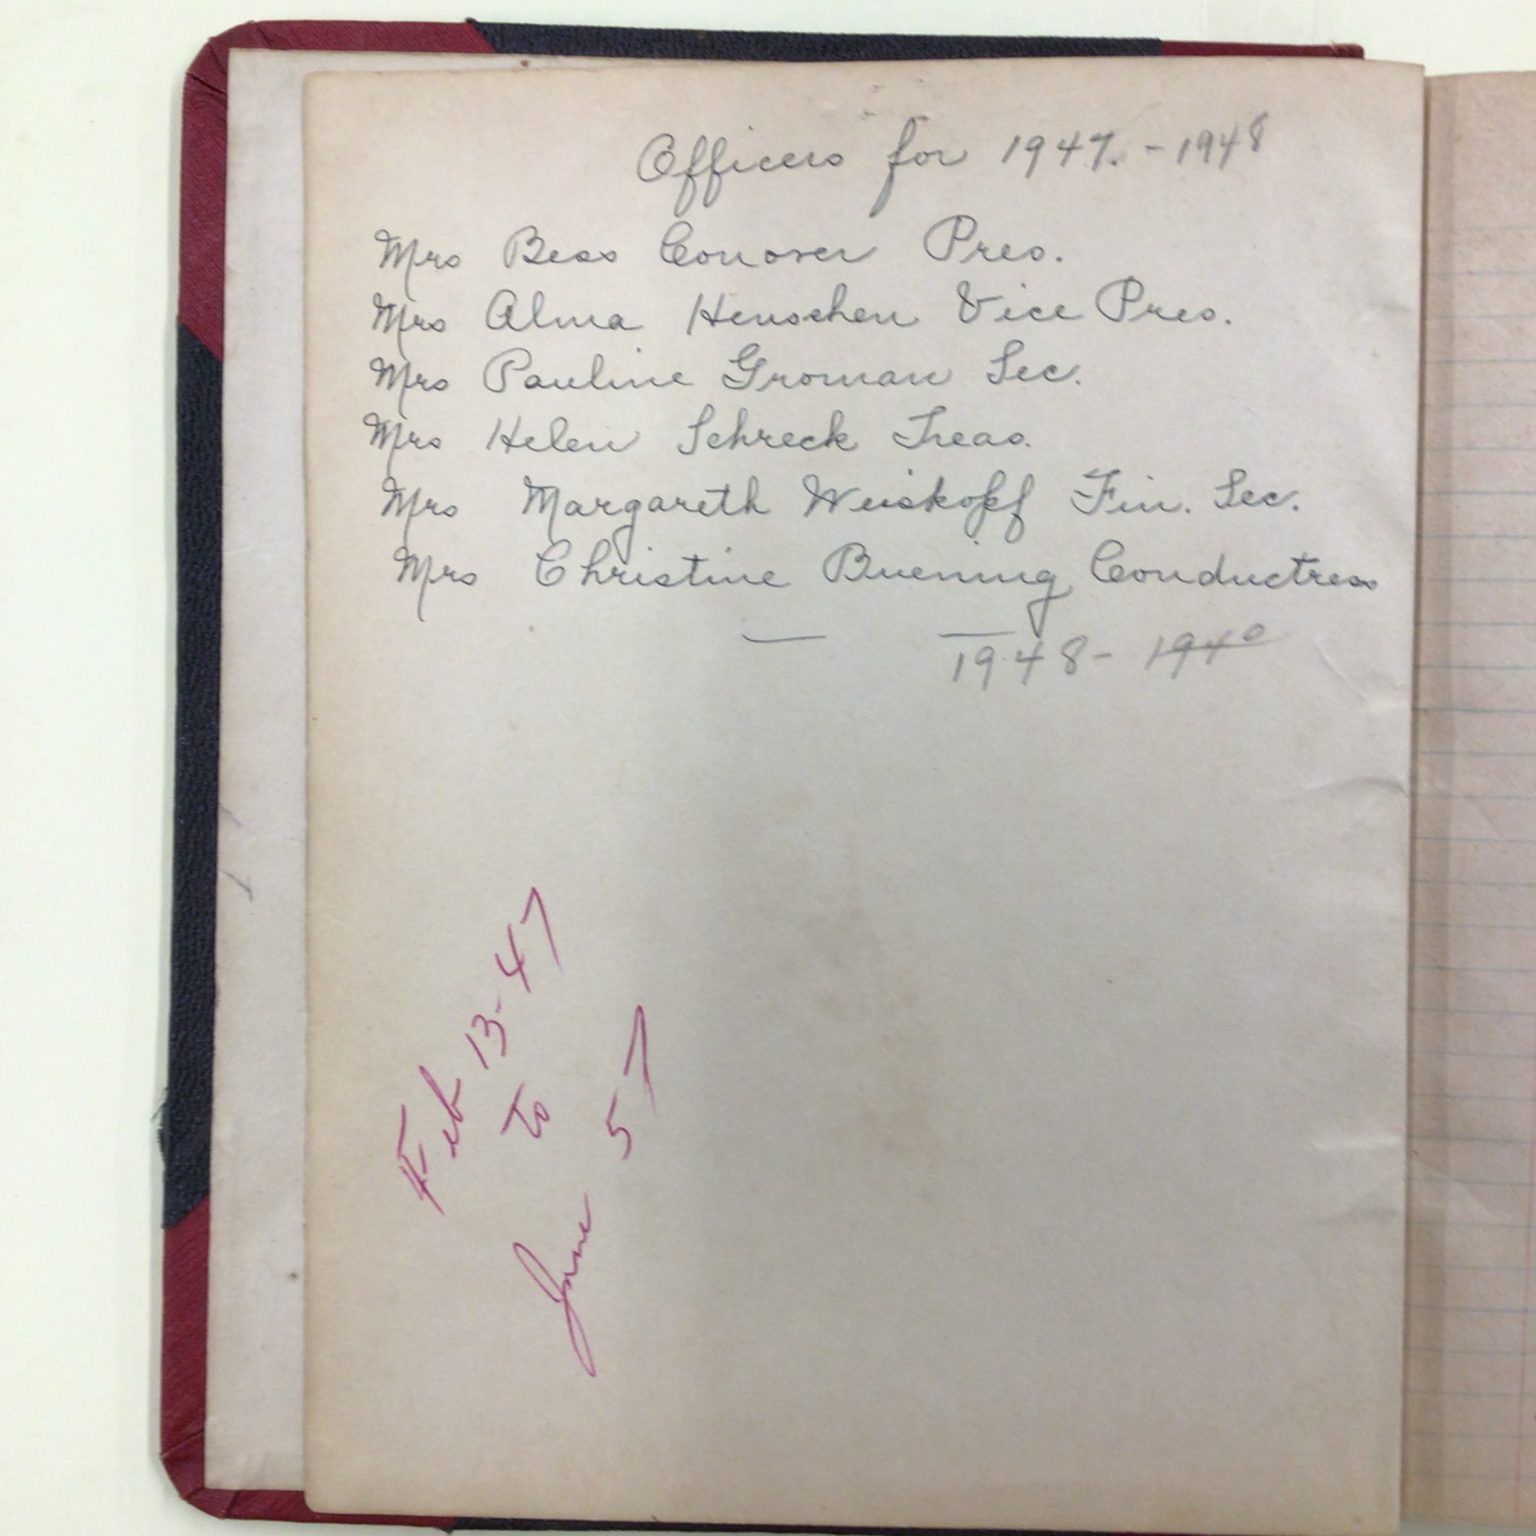 Officers for 1947. - 1948
Mrs Bess Conover Pres.
Mrs Alma Henschen Vice Pres.
Mrs Pauline Groman Sec.
Mrs Helen Schreck Treas.
Mrs Margareth Weiskopf Fin. Sec.
Mrs Christine Buening Conductress
1948 -
Feb 13-47
to
June 57